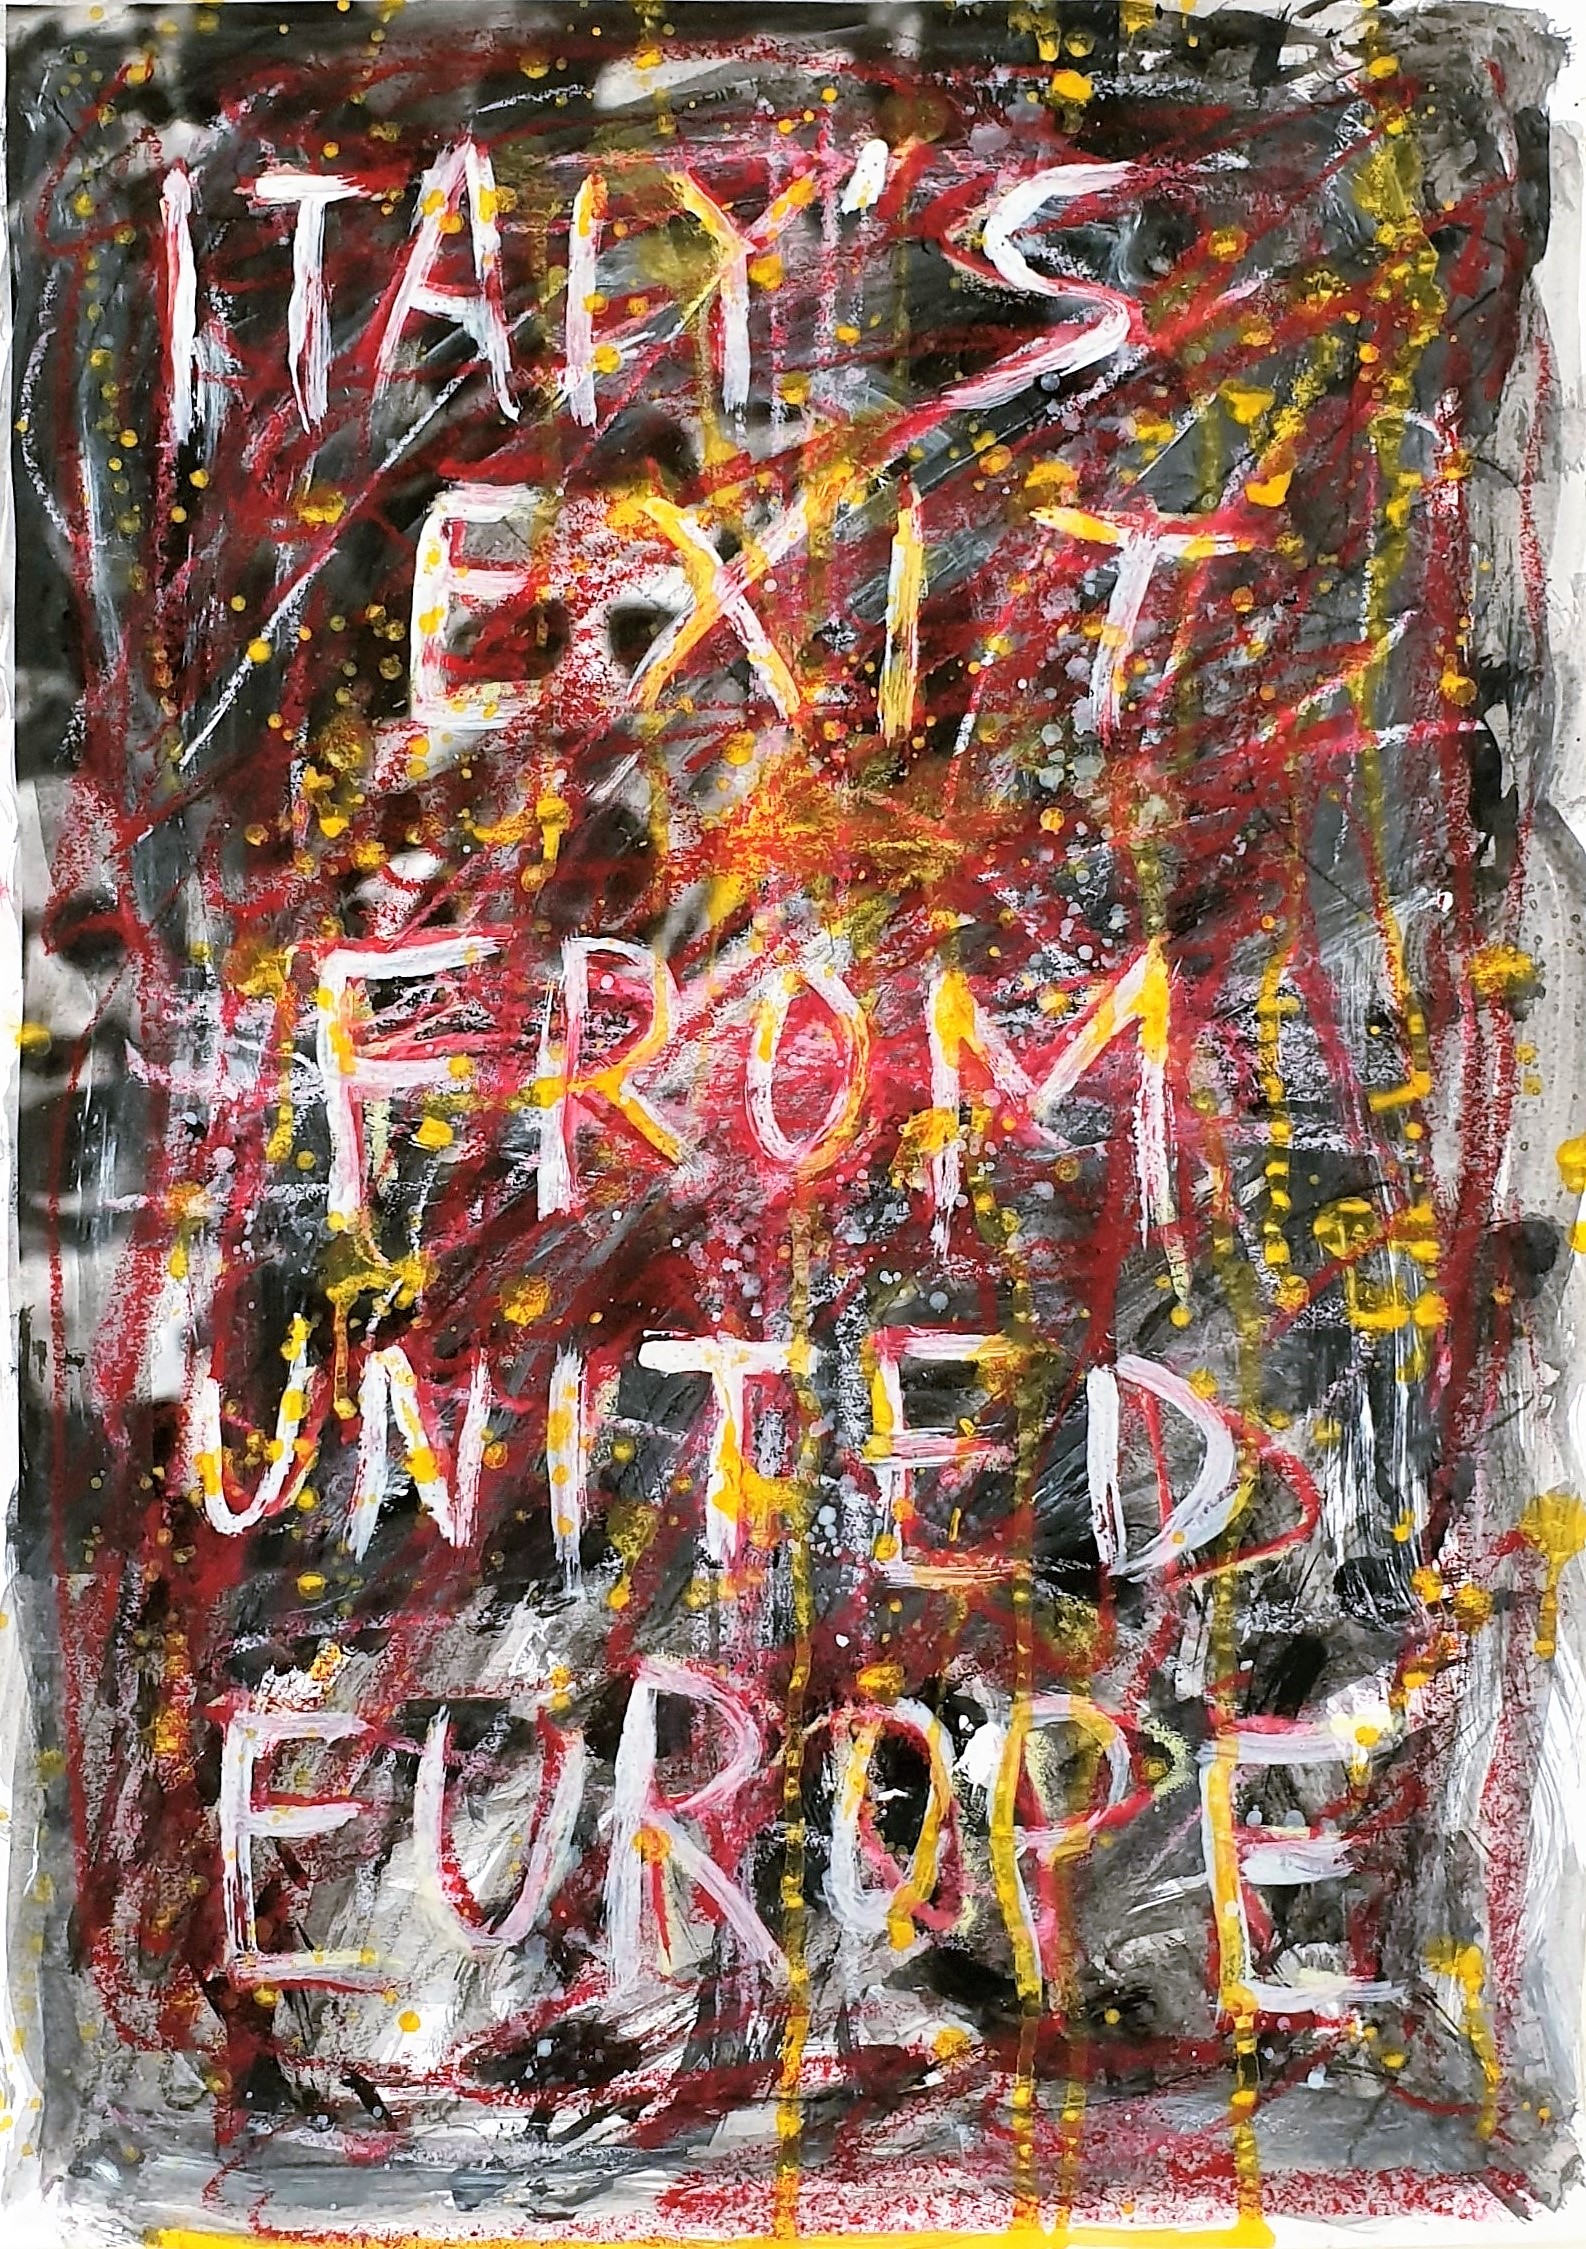 ITALY'S
EXIT
FROM
UNITED
EUROPE